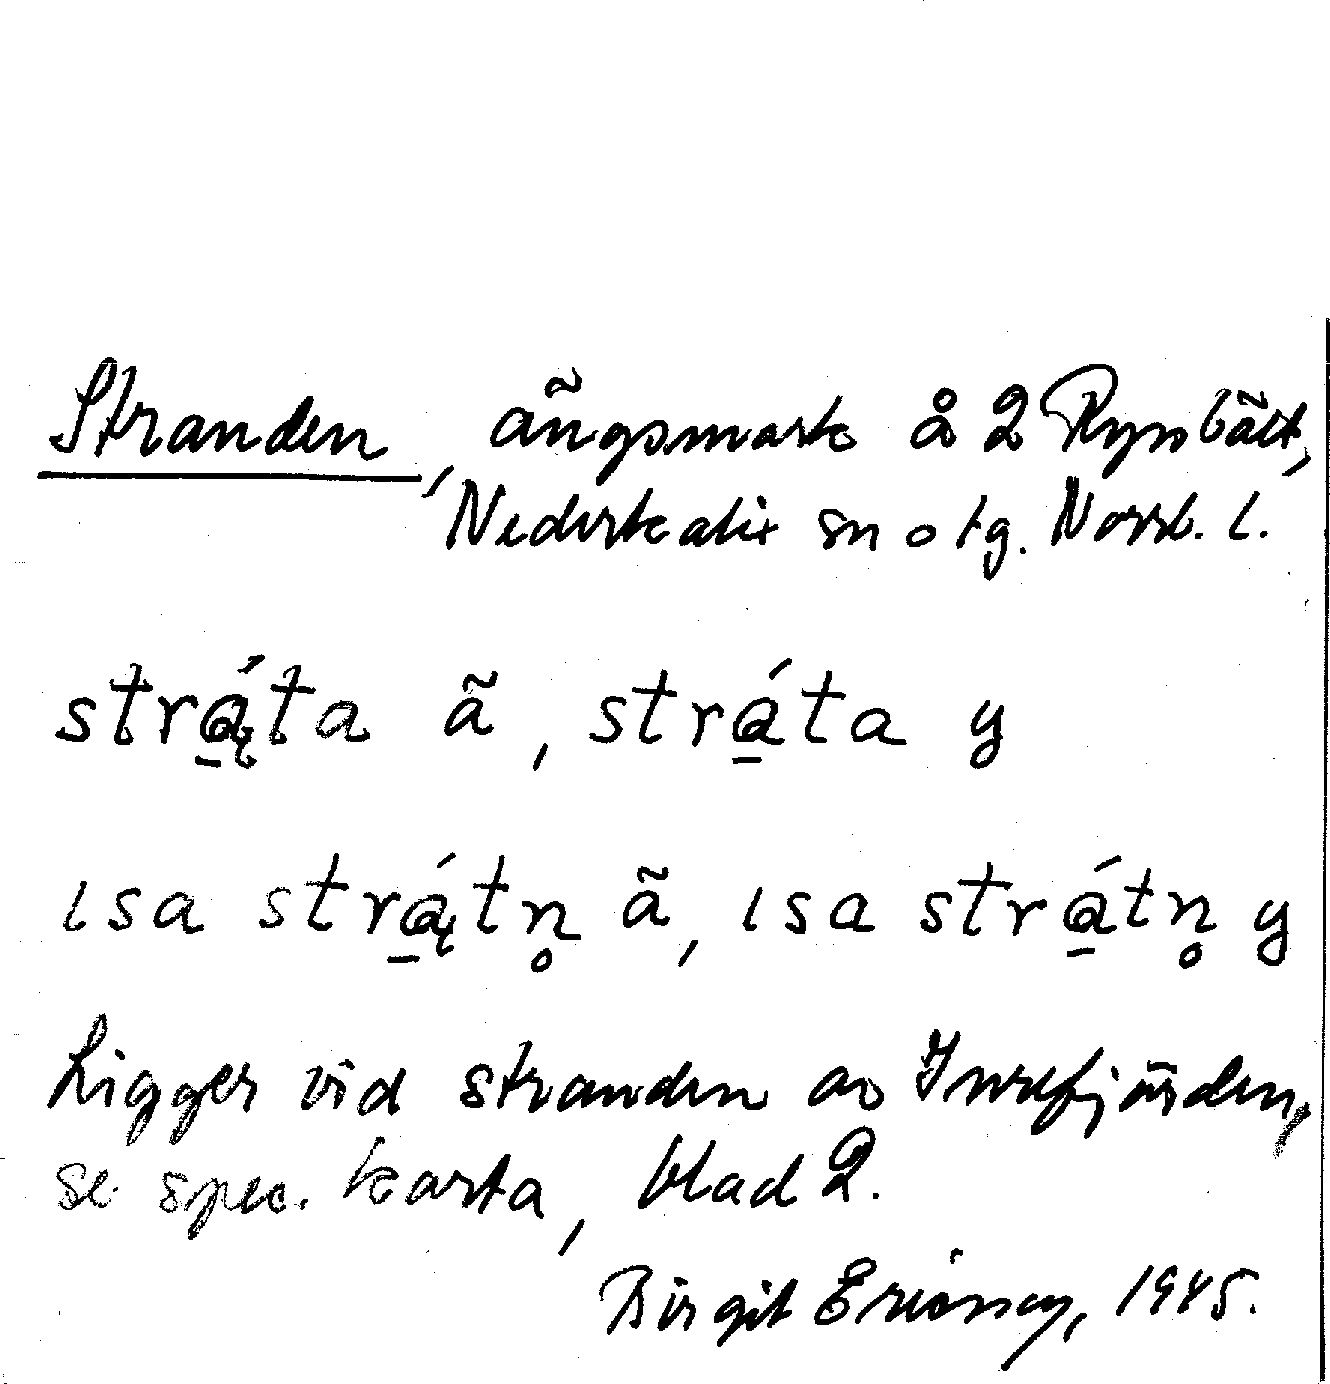 Stranden, ängsmark å 2 Ryssbält,
Nederkalix sn o tg. Norrb. l.
strą̱́ta ã, strá̱ta y
ısa strą̱́tn̥ ã, ısa strá̱tn̥ y
Ligger vid stranden av Inrefjärden,
se spec. karta, blad 2.
Birgit Ericson, 1945.